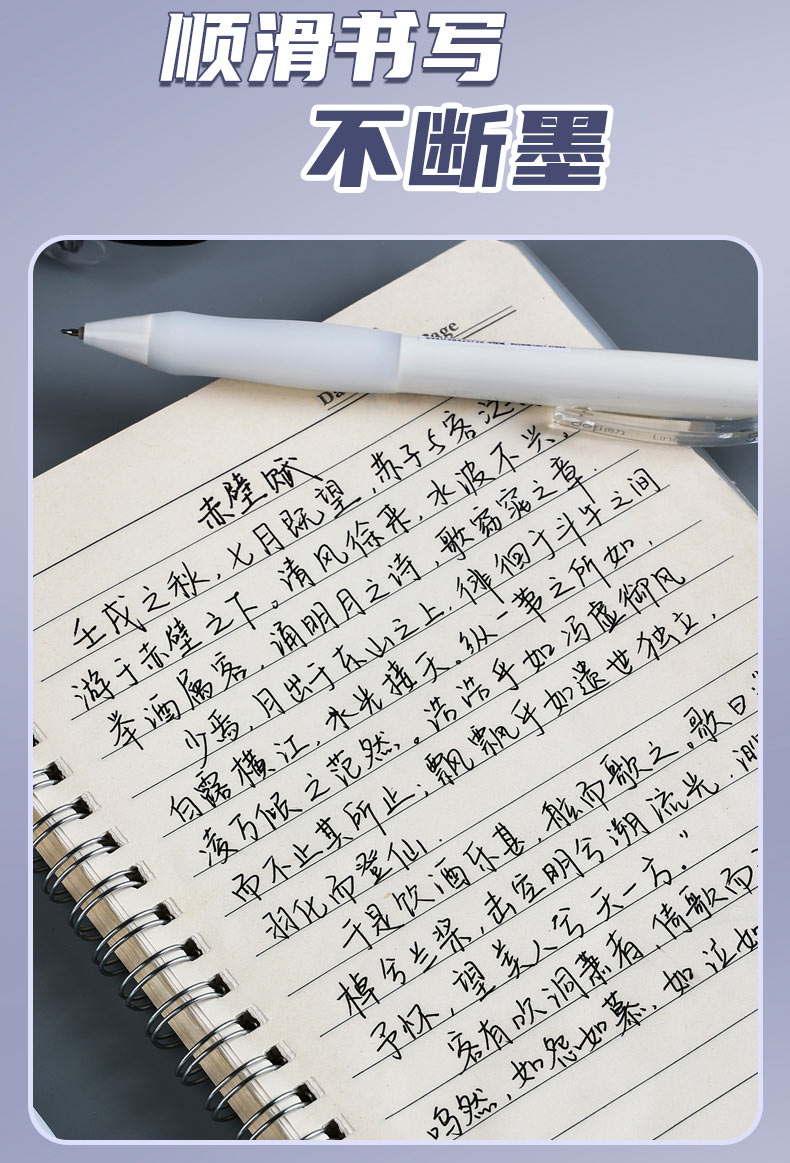 顺滑书写
不断墨
Page
Da
deli得力
赤壁赋
壬戌之秋,七月既望,苏子与客泛
游于赤壁之下。清风徐来,水波不兴,
举酒属客,诵明月之诗,歌窈窕之章.
少焉,月出于东山之上,徘徊于斗牛之间
白露横江,水光接天。纵一苇之所如,
凌万倾之茫然。浩浩乎如冯虚御风
而不止其所止;飘飘乎如遗世独立,
羽化而登仙.
于是饮酒乐甚,舷而歌之。歌曰
棹兮兰桨,击空明兮溯流光.
予怀,望美人兮天一方。"
客有吹洞萧者,倚歌而
呜然,如怨如慕,如泣如